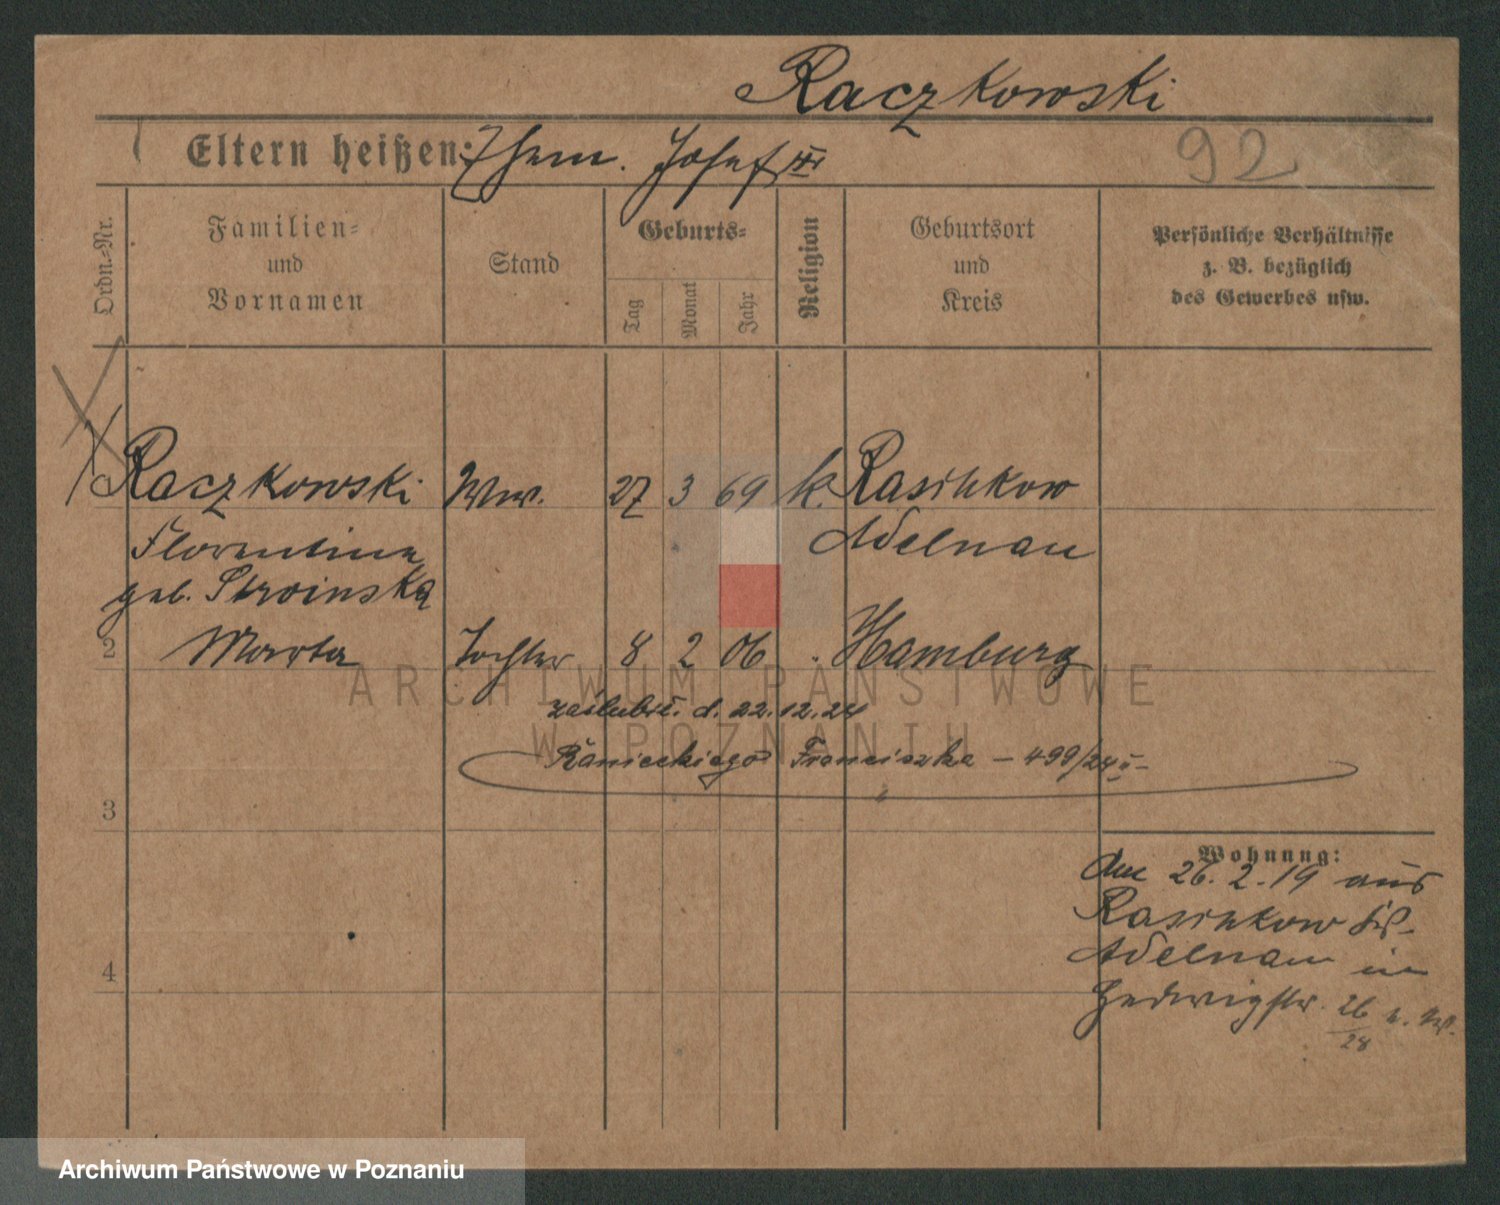 Raczkowski
Eltern heißen: Ehem. Josef III
92
Ordn.-Nr.
Familien-
und
Vornamen
Stand
Geburts-
Tag
Monat
Jahr
Religion
Geburtsort
und
Kreis
Persönliche Verhältnisse
z. B. bezüglich
des Gewerbes usw.
Raczkowski Ww. 27 3 69 k. Raschkow
Florentine Adelnau
geb. Stroinska
2 Marta Tochter 8 2 06 Hamburg
zaślubił. d. 22.12.24
Franciszka - 499/24
3
Wohnung:
Am 26.2.19 aus
Raschkow
Adelnau in
4
Hedwigstr. 26
28
ARCHIWUM PAŃSTWOWE
W POZNANIU
Archiwum Państwowe w Poznaniu